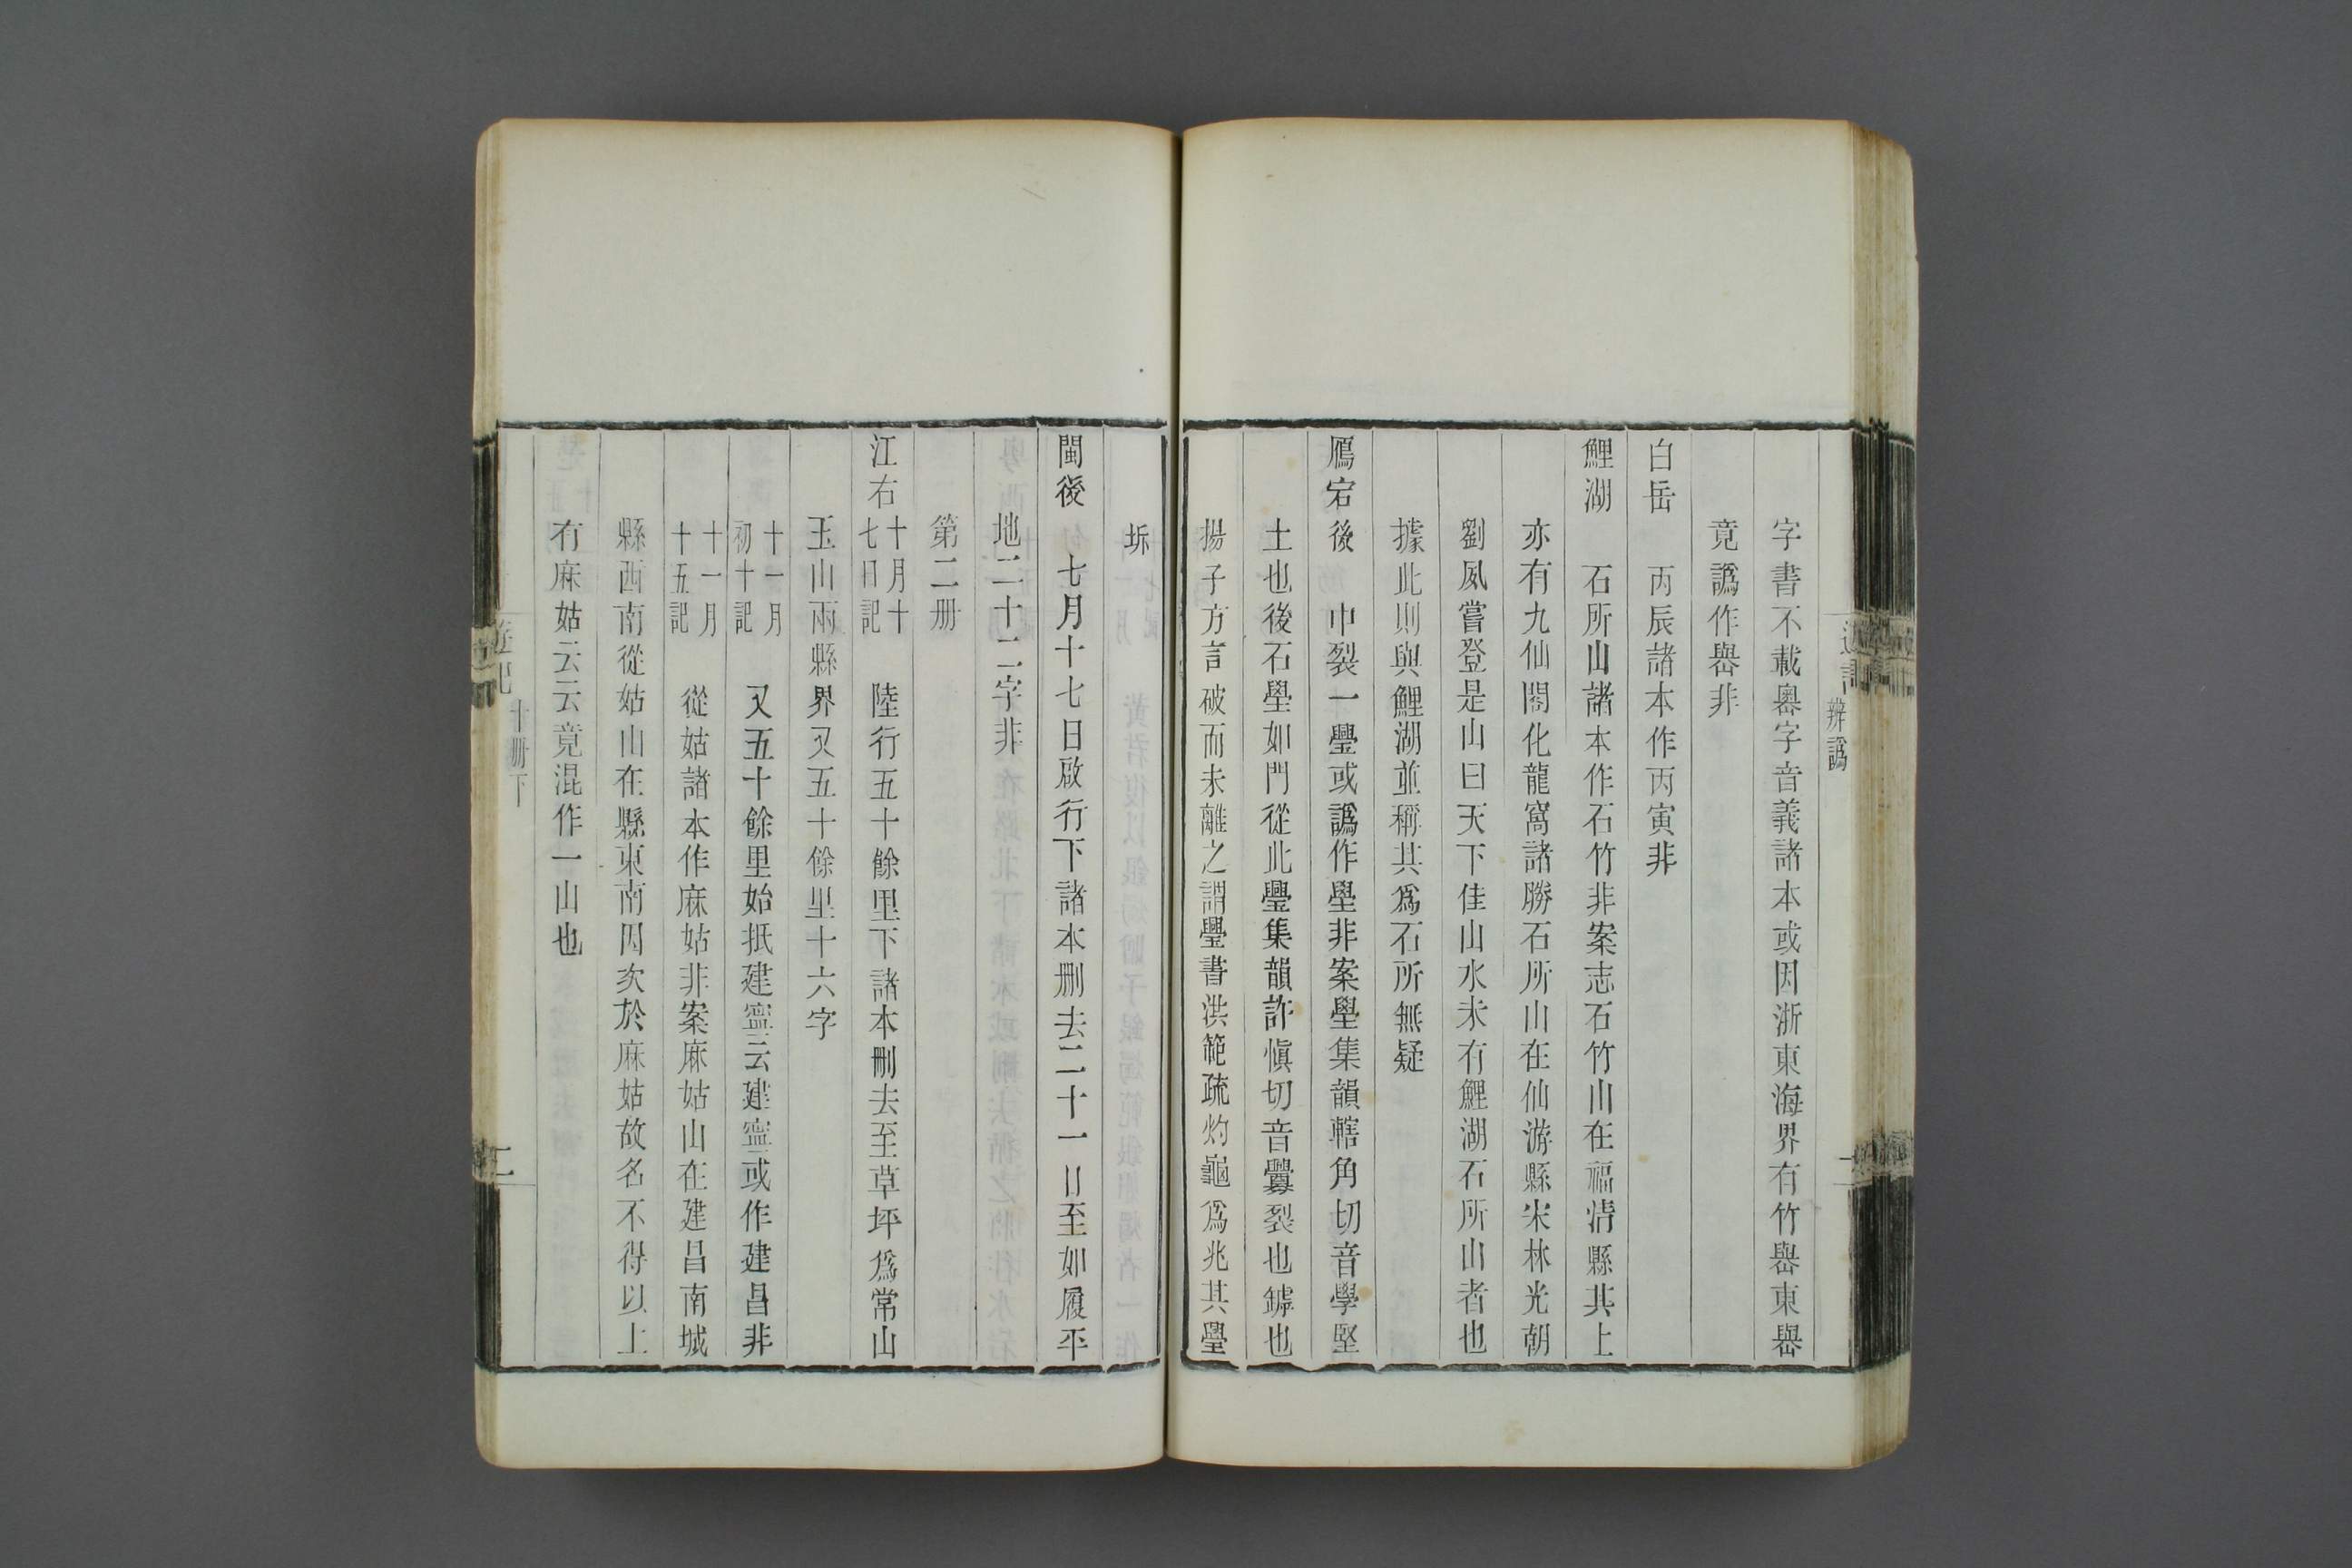 遊記
辨譌
字書不載㠗字音義諸本或因浙東海界有竹嶨東嶨
竟譌作嶨非
白岳　丙辰諸本作丙寅非
鯉湖　石所山諸本作石竹非案志石竹山在福淸縣其上
亦有九仙閣化龍窩諸勝石所山在仙游縣宋林光朝
劉夙嘗登是山曰天下佳山水未有鯉湖石所山者也
據此則與鯉湖並稱其爲石所無疑
鴈宕後　中裂一璺或譌作壆非案壆集韻轄角切音學堅
土也後石壆如門從此璺集韻許愼切音釁裂也罅也
揚子方言破而未離之謂璺書洪範疏灼龜爲兆其璺
坼
閩後　七月十七日啟行下諸本刪去二十一日至如履平
地二十二字非
第二册
江右十月十七日記　陸行五十餘里下諸本刪去至草坪爲常山
玉山兩縣界又五十餘里十六字
十一月初十記　又五十餘里始抵建寧云建寧或作建昌非
十一月十五記　從姑諸本作麻姑非案麻姑山在建昌南城
縣西南從姑山在縣東南因次於麻姑故名不得以上
有麻姑云云竟混作一山也
遊記
十册下
二